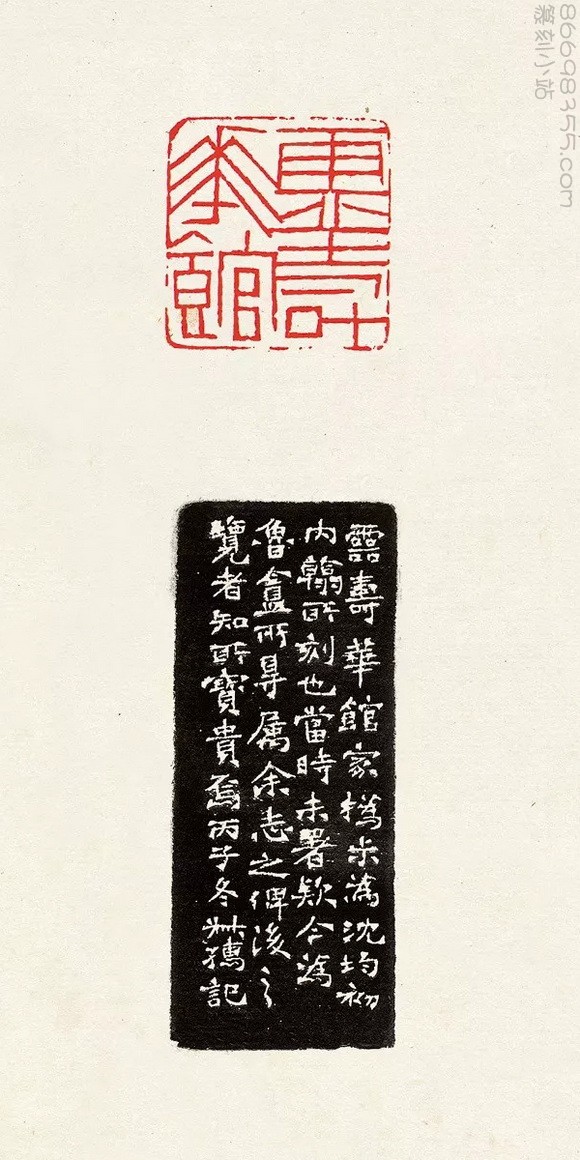 86698355.com
篆刻小站
靈壽
華館
霝壽華館家撝尗為沈均初
內翰所刻也當時未署款今為
魯盦所㝵属余志之俾後之
覽者知所寶貴焉丙子冬叔孺記